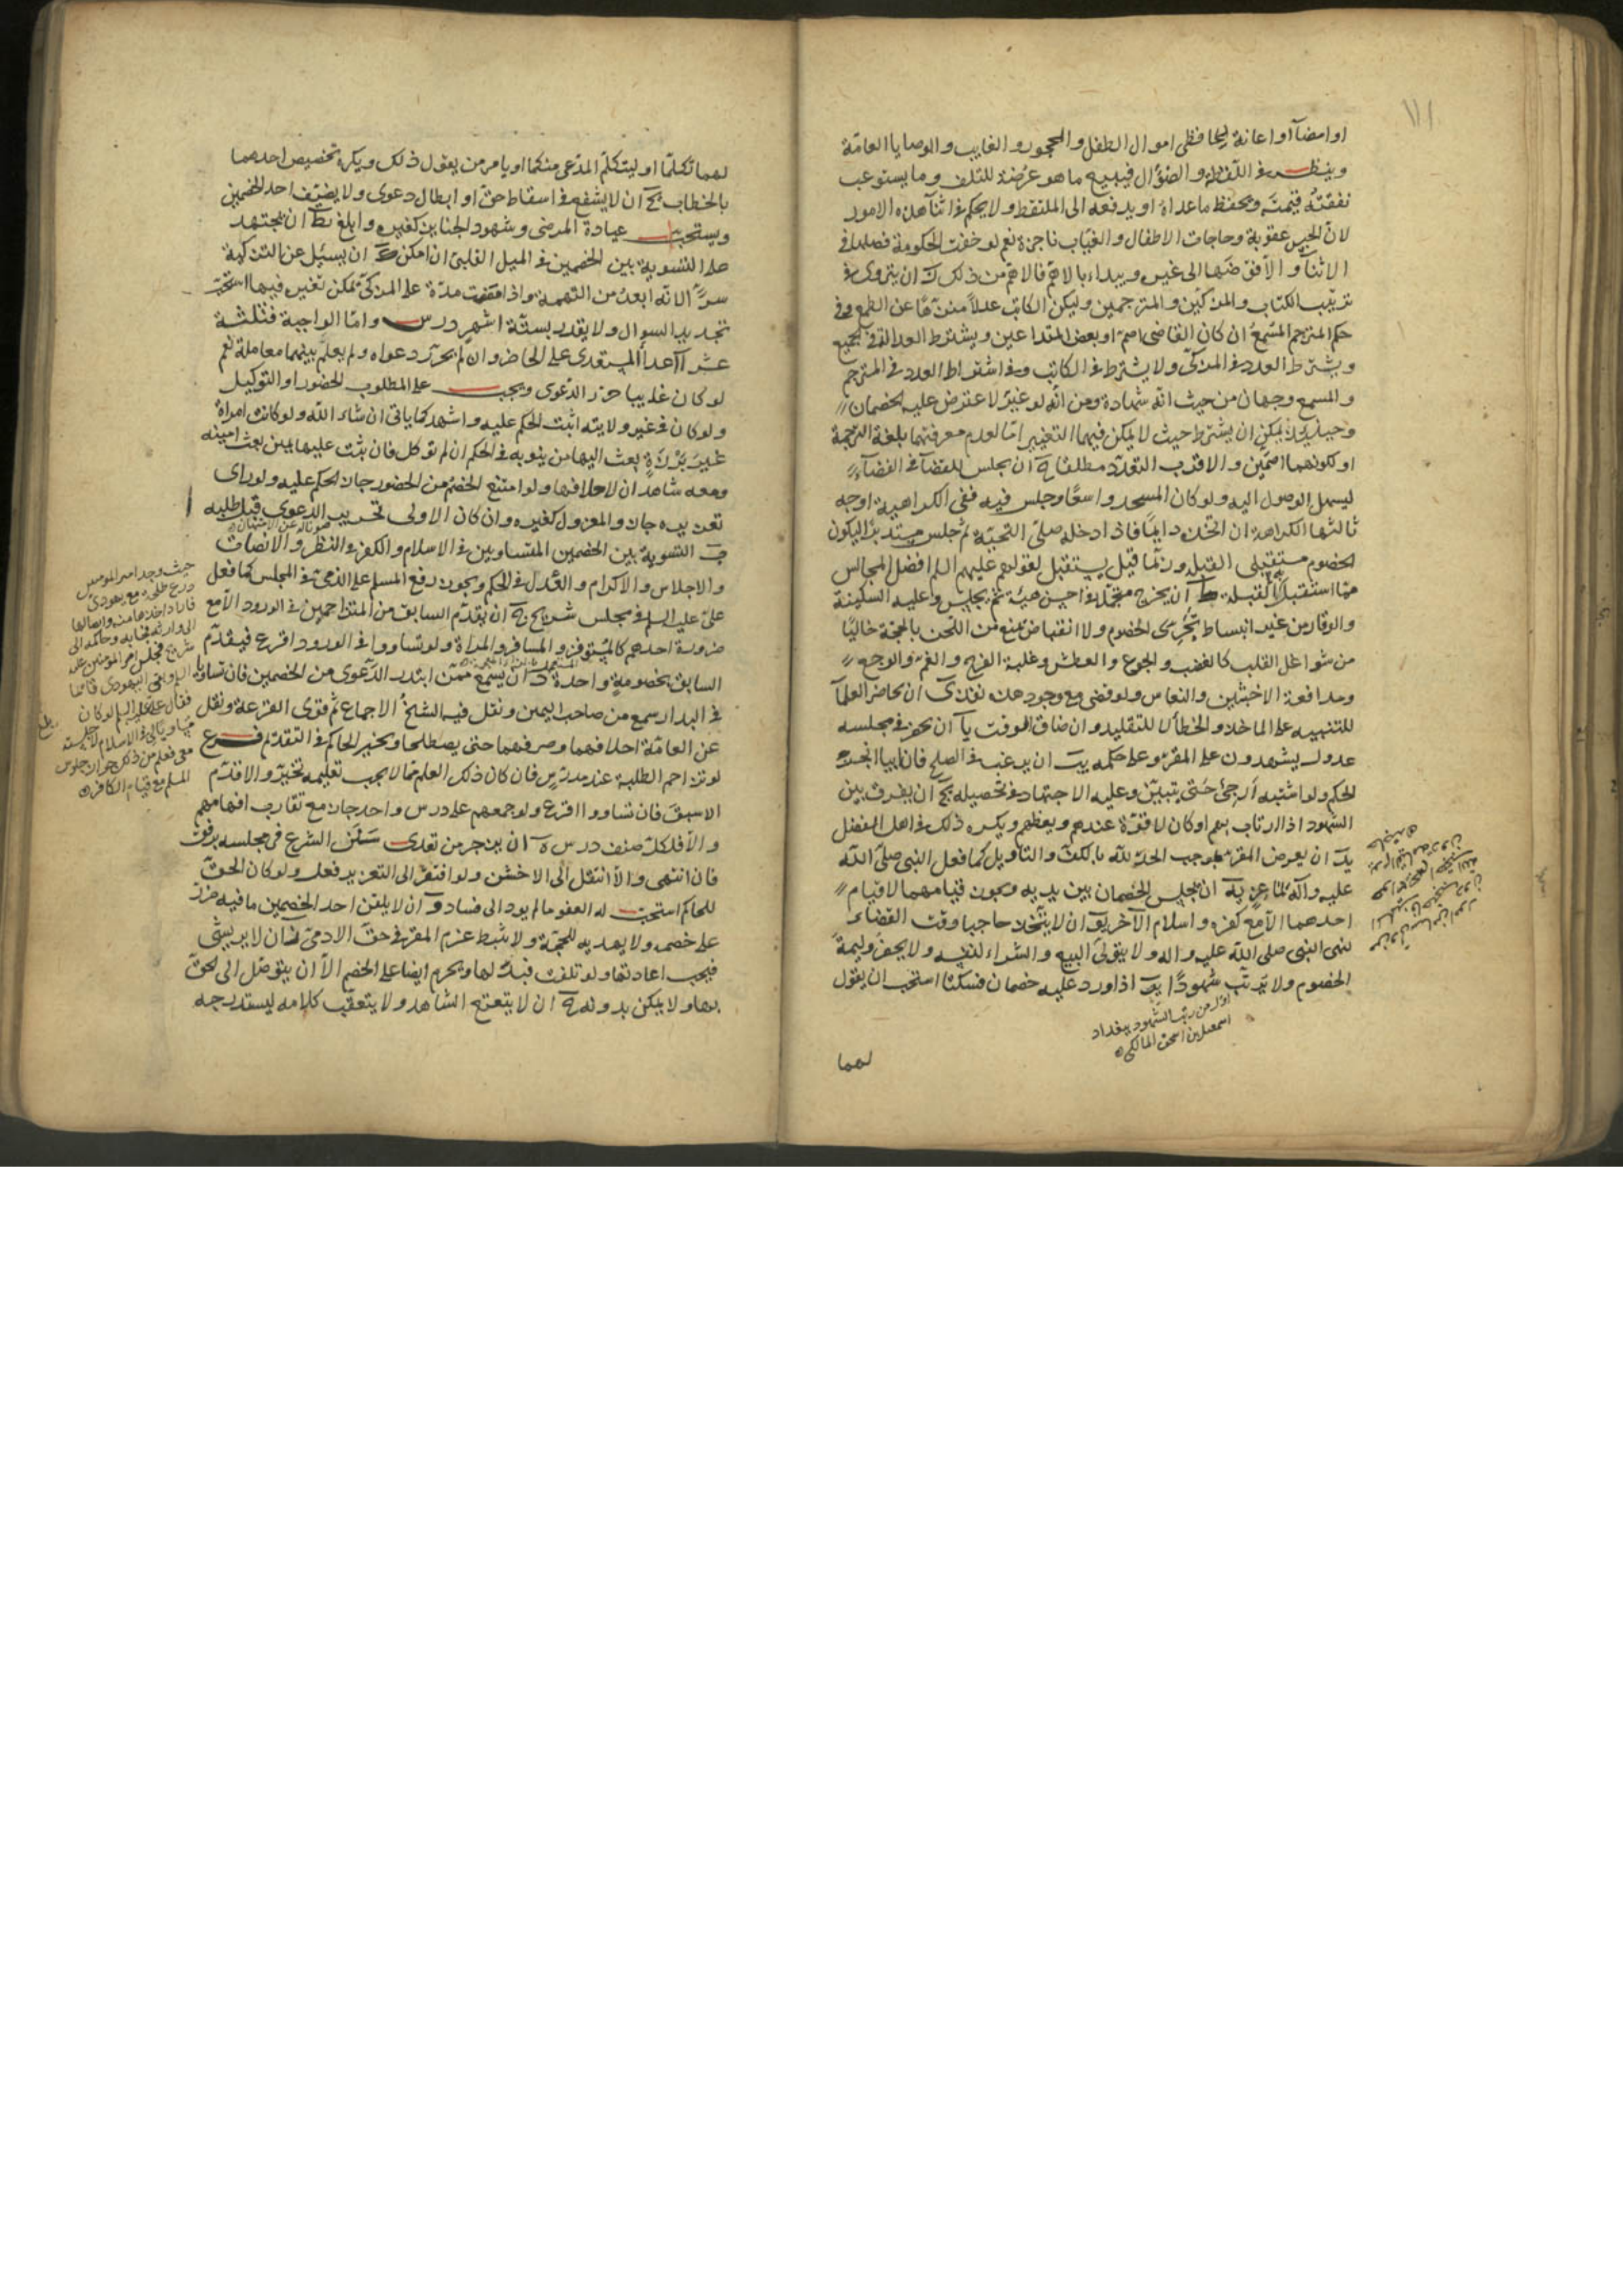 او امضآ او اعانة لحافظی اموال الطفل والمحجور والغایب والوصایا العامّة
وینظر فی اللقطة والضوٰال فیبیع ما هو عُرضة للتلف وما یستوعب
نفقتهُ قیمتَه ویحفظ ما عداه او یدفعه الی الملتقط ولا یحکم فی اثنآ هذه الامور
لانّ الحبس عقوبة وحاجات الاطفال والغیّاب ناجزة نعم لو خفّت الحکومة فصلها فی
الاثنآ والّا فوّضها الی غیره ویبداء بالاهمّ فالاهمّ من ذلک ان یتروی فی
ترتیب الکتاب والمزکّین والمترجمین ولیکن الکاتب عدلاً منزّهًا عن الطمع وفی
حکم المترجم المسّمعُ ان کان القاضی اصمّ او بعض المتداعین ویشترط العدالة فی الجمیع
ویشترط العدد فی المزکّی ولا یشترط فی الکاتب وفی اشتراط العدد فی المترجم
والمسمع وجهان من حیث انّه شهادة ومن انّه لو غیّر لاعترض علیه الخصمان
وحینئذ یمکن ان یشترط حیث لا یمکن فیهما التغییر امّا لعدم معرفتهما بلغة الترجمة
او لکونهما اصمّین والاقرب التعدّد مطلقًا ان یجلس للقضآ فی الفضآء
لیسهل الوصول الیه ولو کان المسجد واسعًا وجلس فیه ففی الکراهیة اوجه
ثالثها الکراهة ان اتخذه دایمًا فاذا دخله صلّی التحیّة ثم جلس مستدبرًا لیکون
الخصوم مستقبلی القبلة وربّما قیل یستقبل لقولهم علیهم السلم افضل المجالس
ما استقبل به القبلة ط ان یخرج متجمّلاً فی احسن هیئة ثم یجلس وعلیه السکینة
والوقار من غیر انبساط یجُرّی الخصوم ولا انقباض یمنع من اللحن بالحجة خالیًا
من شواغل القلب کالغضب والجوع والعطش وغلبة الفرح والغم والوجع
ومدافعة الاخبثین والنعاس ولو قضی مع وجود هذه نفذ ی ان یحاضر العلمآ
للتنبیه علی الماخذ والخطأ لا للتقلید وان ضاق الوقت یآ ان یحضر فی مجلسه
عدول یشهدون علی المقرّ وعلی حکمه یب ان یرغب فی الصلح فان ابیا انجز
الحکم ولو اشتبه اَرجئ حتّی یتبیّن وعلیه الاجتهاد فی تحصیله یج آن یفرق بین
الشهود اذا ارتاب بهم او کان لا قوّة عندهم ویعظهم ویکره ذلک فی اهل الفضل
ید ان یعرض المقرّ بموجب الحدّ لله بالکف والتاویل کما فعل النبی صلّی اللّه
علیه وآله بماعزٍ یه ان یجلس الخصمان بین یدیه ویجوز قیامهما لا قیام
احدهما الّا مع کفره واسلام الآخر یو ان لا یتّخذ حاجبا وقت القضاء
لنهی النبی صلی اللّه علیه واله ولا یتولّی البیع والشراء لنفسه ولا یحضر ولیمة
الخصوم ولا یرتّب شهودًا یز اذا ورد علیه خصمان فسکتا استحب ان یقول
اوّل من رتب الشهود ببغداد
اسمعیل بن اسحق المالکی
لهما
لهما تکلّما او لیتکلّم المدّعی منکما او یامر من یقول ذلک ویکره تخصیص احدهما
بالخطاب یح آن لا یشفع فی اسقاط حقّ او ابطال دعوی ولا یضیّف احد الخصمین
ویستحب عیادة المرضی وشهود الجنایز کغیره وابلغ یط ان یجتهد
علی التسویة بین الخصمین فی المیل القلبی ان امکن ک ان یسئل عن التزکیة
سرًّا لانّه ابعدُ من التهمة واذا مضت مدّة علی المزکّی یمکن تغیره فیها استحبّ
تجدید السوال ولا یقدر بستّة اشهر درس وامّا الواجبة فثلثة
عشر آ اعدأ المستعدی علی الحاضر وان لم یحرّر دعواه ولم یعلم بینهما معاملة نعم
لو کان غایبا حرر الدّعوی ویجب علی المطلوب الحضور او التوکیل
ولو کان فی غیر ولایته اثبت الحکم علیه واشهد کما یاتی ان شاء الله ولو کانت امراة
غیرَ بَرْزَةٍ بعث الیها من ینوبه فی الحکم ان لم توکل فان ثبت علیها یمین بعث امینه
ومعه شاهدان لاحلافها ولو امتنع الخصم من الحضور جاز الحکم علیه ولو رای
تعزیره جاز والمعزول کغیره وان کان الاولی تحریر الدعوی قبل طلبه
صونا له عن الامتهان
ب التسویة بین الخصمین المتساویین فی الاسلام والکفر فی النظر والانصات
والاجلاس والاکرام والعدل فی الحکم ویجوز رفع المسلم علی الذمیّ فی المجلس کما فعل
علیّ علیه السلم فی مجلس شریح ج ان یقدّم السابق من المتزاحمین فی الورود الّا مع
ضرورة احدهم کالمستوفز والمسافر والمراة ولو تساووا فی الورود اقرع فیقدّم
السابق بخصومة واحدة د آن یسمع ممّن ابتدر الدّعوی من الخصمین فان تساویا
فی البدار سمع من صاحب الیمین ونقل فیه الشیخُ الاجماع ثم قوّی القرعة ونقل
عن العامّة احلافهما وصرفهما حتی یصطلحا وتخییر الحاکم فی التقدیم فرع
لو تزاحم الطلبة عند مدرّسٍ فان کان ذلک العلم ممّا لا یجب تعلیمه تخیّر والا قدّم
الاسبق فان تساووا اقرع ولو جمعهم علی درس واحد جاز مع تقارب افهامهم
والّا فلکلّ صنف درس ه آن یزجر من تعدی سَنَن الشرع فی مجلسه برفق
فان انتهی والّا انتقل الی الاخشن ولو افتقر الی التعزیر فعل ولو کان الحقّ
للحاکم استحبّ له العفو ما لم یود الی فساد و آن لا یلقن احد الخصمین ما فیه ضرر
علی خصمه ولا یهدیه للحجّة ولا یثبط عزم المقرّ فی حقّ الادمیّ ز آن لا یرتشی
فیجب اعادتها ولو تلفت فبدلها ویحرم ایضا علی الخصم الّا ان یتوصّل الی حقّه
بها ولا یمکن بدونه ح ان لا یتعتع الشاهد ولا یتعقّب کلامه لیستدرجه
حیث وجد امیر المومنین
درع طلحة مع یهودی
فاراد اخذها منه
شریح فجلس امیر المومنین علیه
السلم وبقی الیهودی قائما
فقال علیّ علیه السلم لو کان
مساویًا لی فی الاسلام لاجلسته
معی فعلم من ذلک جواز جلوس
المسلم مع قیام الکافر
بلغ